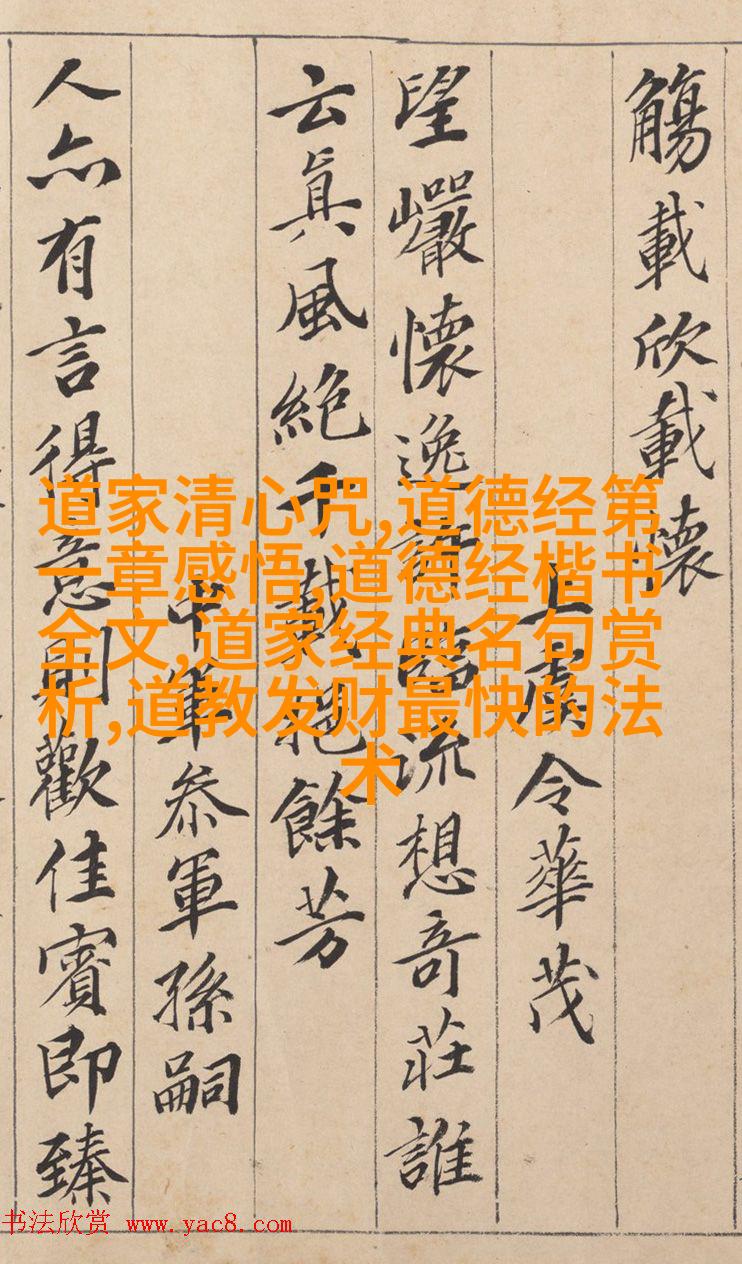 觴載欣載懷
上虞令華茂
望巖懷逸許臨流想奇莊誰
云眞風絶千載挹餘芳
中軍叅軍孫嗣
人亦有言得意則歡佳賓即臻
道家清心咒,道德经第
一章感悟,道德经楷书
全文,道家经典名句赏
析,道教发财最快的法
术
书法欣赏 www.yac8.com